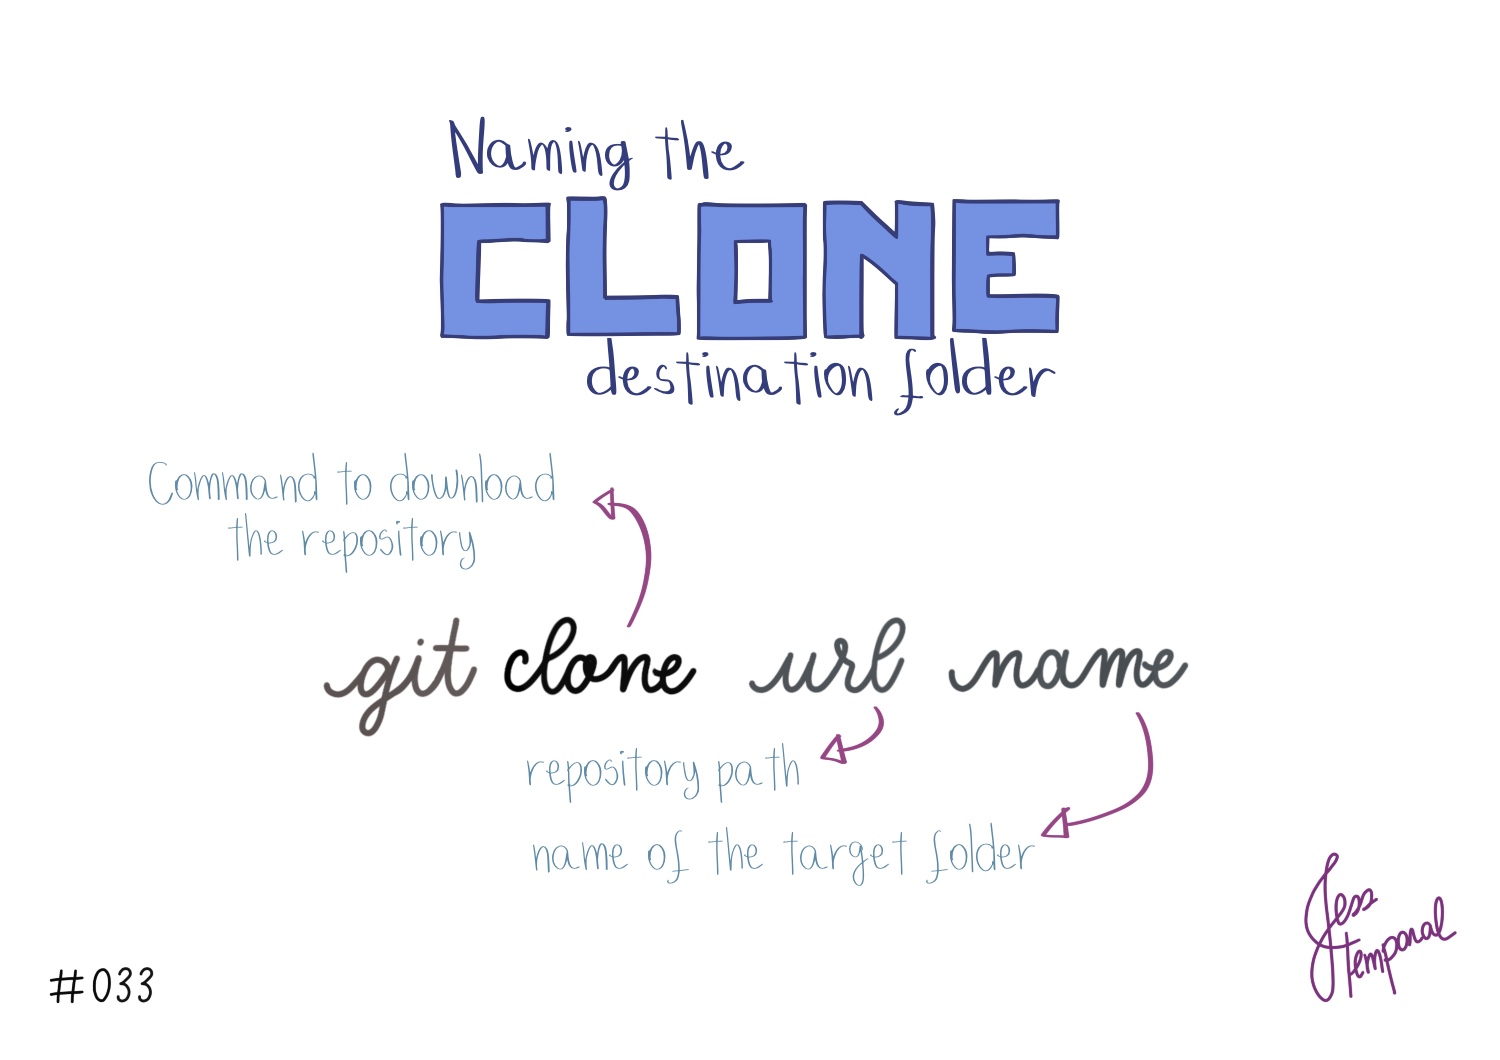 Naming the
CLONE
destination folder
Command to download
the repository
git clone url name
repository path
name of the target folder
#033
Jess
temporal